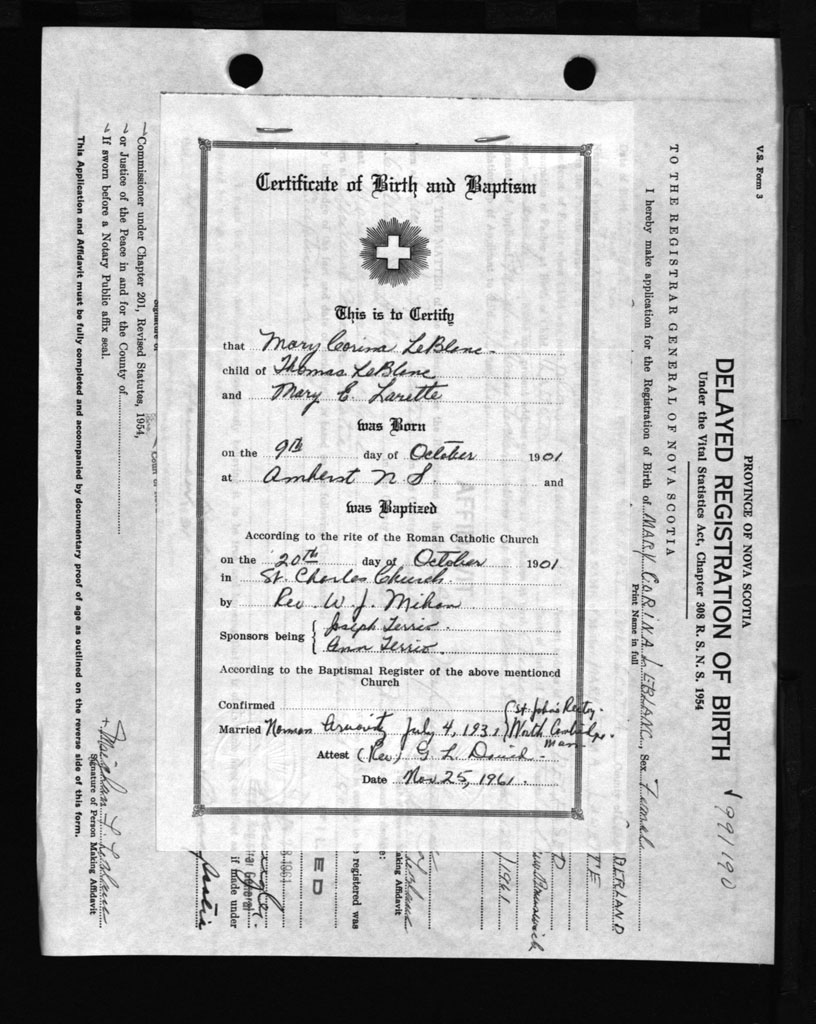 Certificate of Birth and Baptism
This is to Certify
that Mary Corina LeBlanc
child of Thomas LeBlanc
and Mary E. Larette
was Born
on the 9th day of October 1901
at Amherst N S. and
was Baptized
According to the rite of the Roman Catholic Church
on the 20th day of October 1901
in St. Charles Church
by Rev. W. J. Mihan
Sponsors being { Joseph Terrio
Ann Terrio
According to the Baptismal Register of the above mentioned
Church
Confirmed
Married Norman July 4, 1931 { St. John's Rectory
North Cambridge
Mass
Attest (Rev) G L
Date Nov. 25, 1961.
V.S. Form 3
PROVINCE OF NOVA SCOTIA
DELAYED REGISTRATION OF BIRTH
Under the Vital Statistics Act, Chapter 308 R. S. N. S. 1954
991190
TO THE REGISTRAR GENERAL OF NOVA SCOTIA
I hereby make application for the Registration of Birth of MARY CORINA LEBLANC, Sex Female
Print Name in full
1961
New Brunswick
making Affidavit
registered was
if made under
Commissioner under Chapter 201, Revised Statutes, 1954,
or Justice of the Peace in and for the County of
If sworn before a Notary Public affix seal.
Signature of Person Making Affidavit
This Application and Affidavit must be fully completed and accompanied by documentary proof of age as outlined on the reverse side of this form.